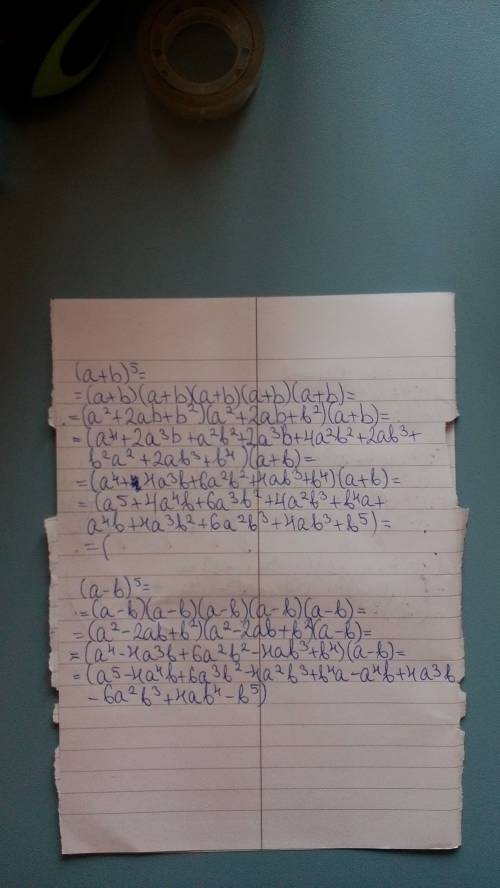 (a+b)⁵=
=(a+b)(a+b)(a+b)(a+b)(a+b)=
=(a²+2ab+b²)(a²+2ab+b²)(a+b)=
=(a⁴+2a³b+a²b²+2a³b+4a²b²+2ab³+
b²a²+2ab³+b⁴)(a+b)=
=(a⁴+4a³b+6a²b²+4ab³+b⁴)(a+b)=
=(a⁵+4a⁴b+6a³b²+4a²b³+b⁴a+
a⁴b+4a³b²+6a²b³+4ab³+b⁵)=
=(
(a-b)⁵=
=(a-b)(a-b)(a-b)(a-b)(a-b)=
=(a²-2ab+b²)(a²-2ab+b²)(a-b)=
=(a⁴-4a³b+6a²b²-4ab³+b⁴)(a-b)=
=(a⁵-4a⁴b+6a³b²-4a²b³+b⁴a-a⁴b+4a³b
-6a²b³+4ab⁴-b⁵)